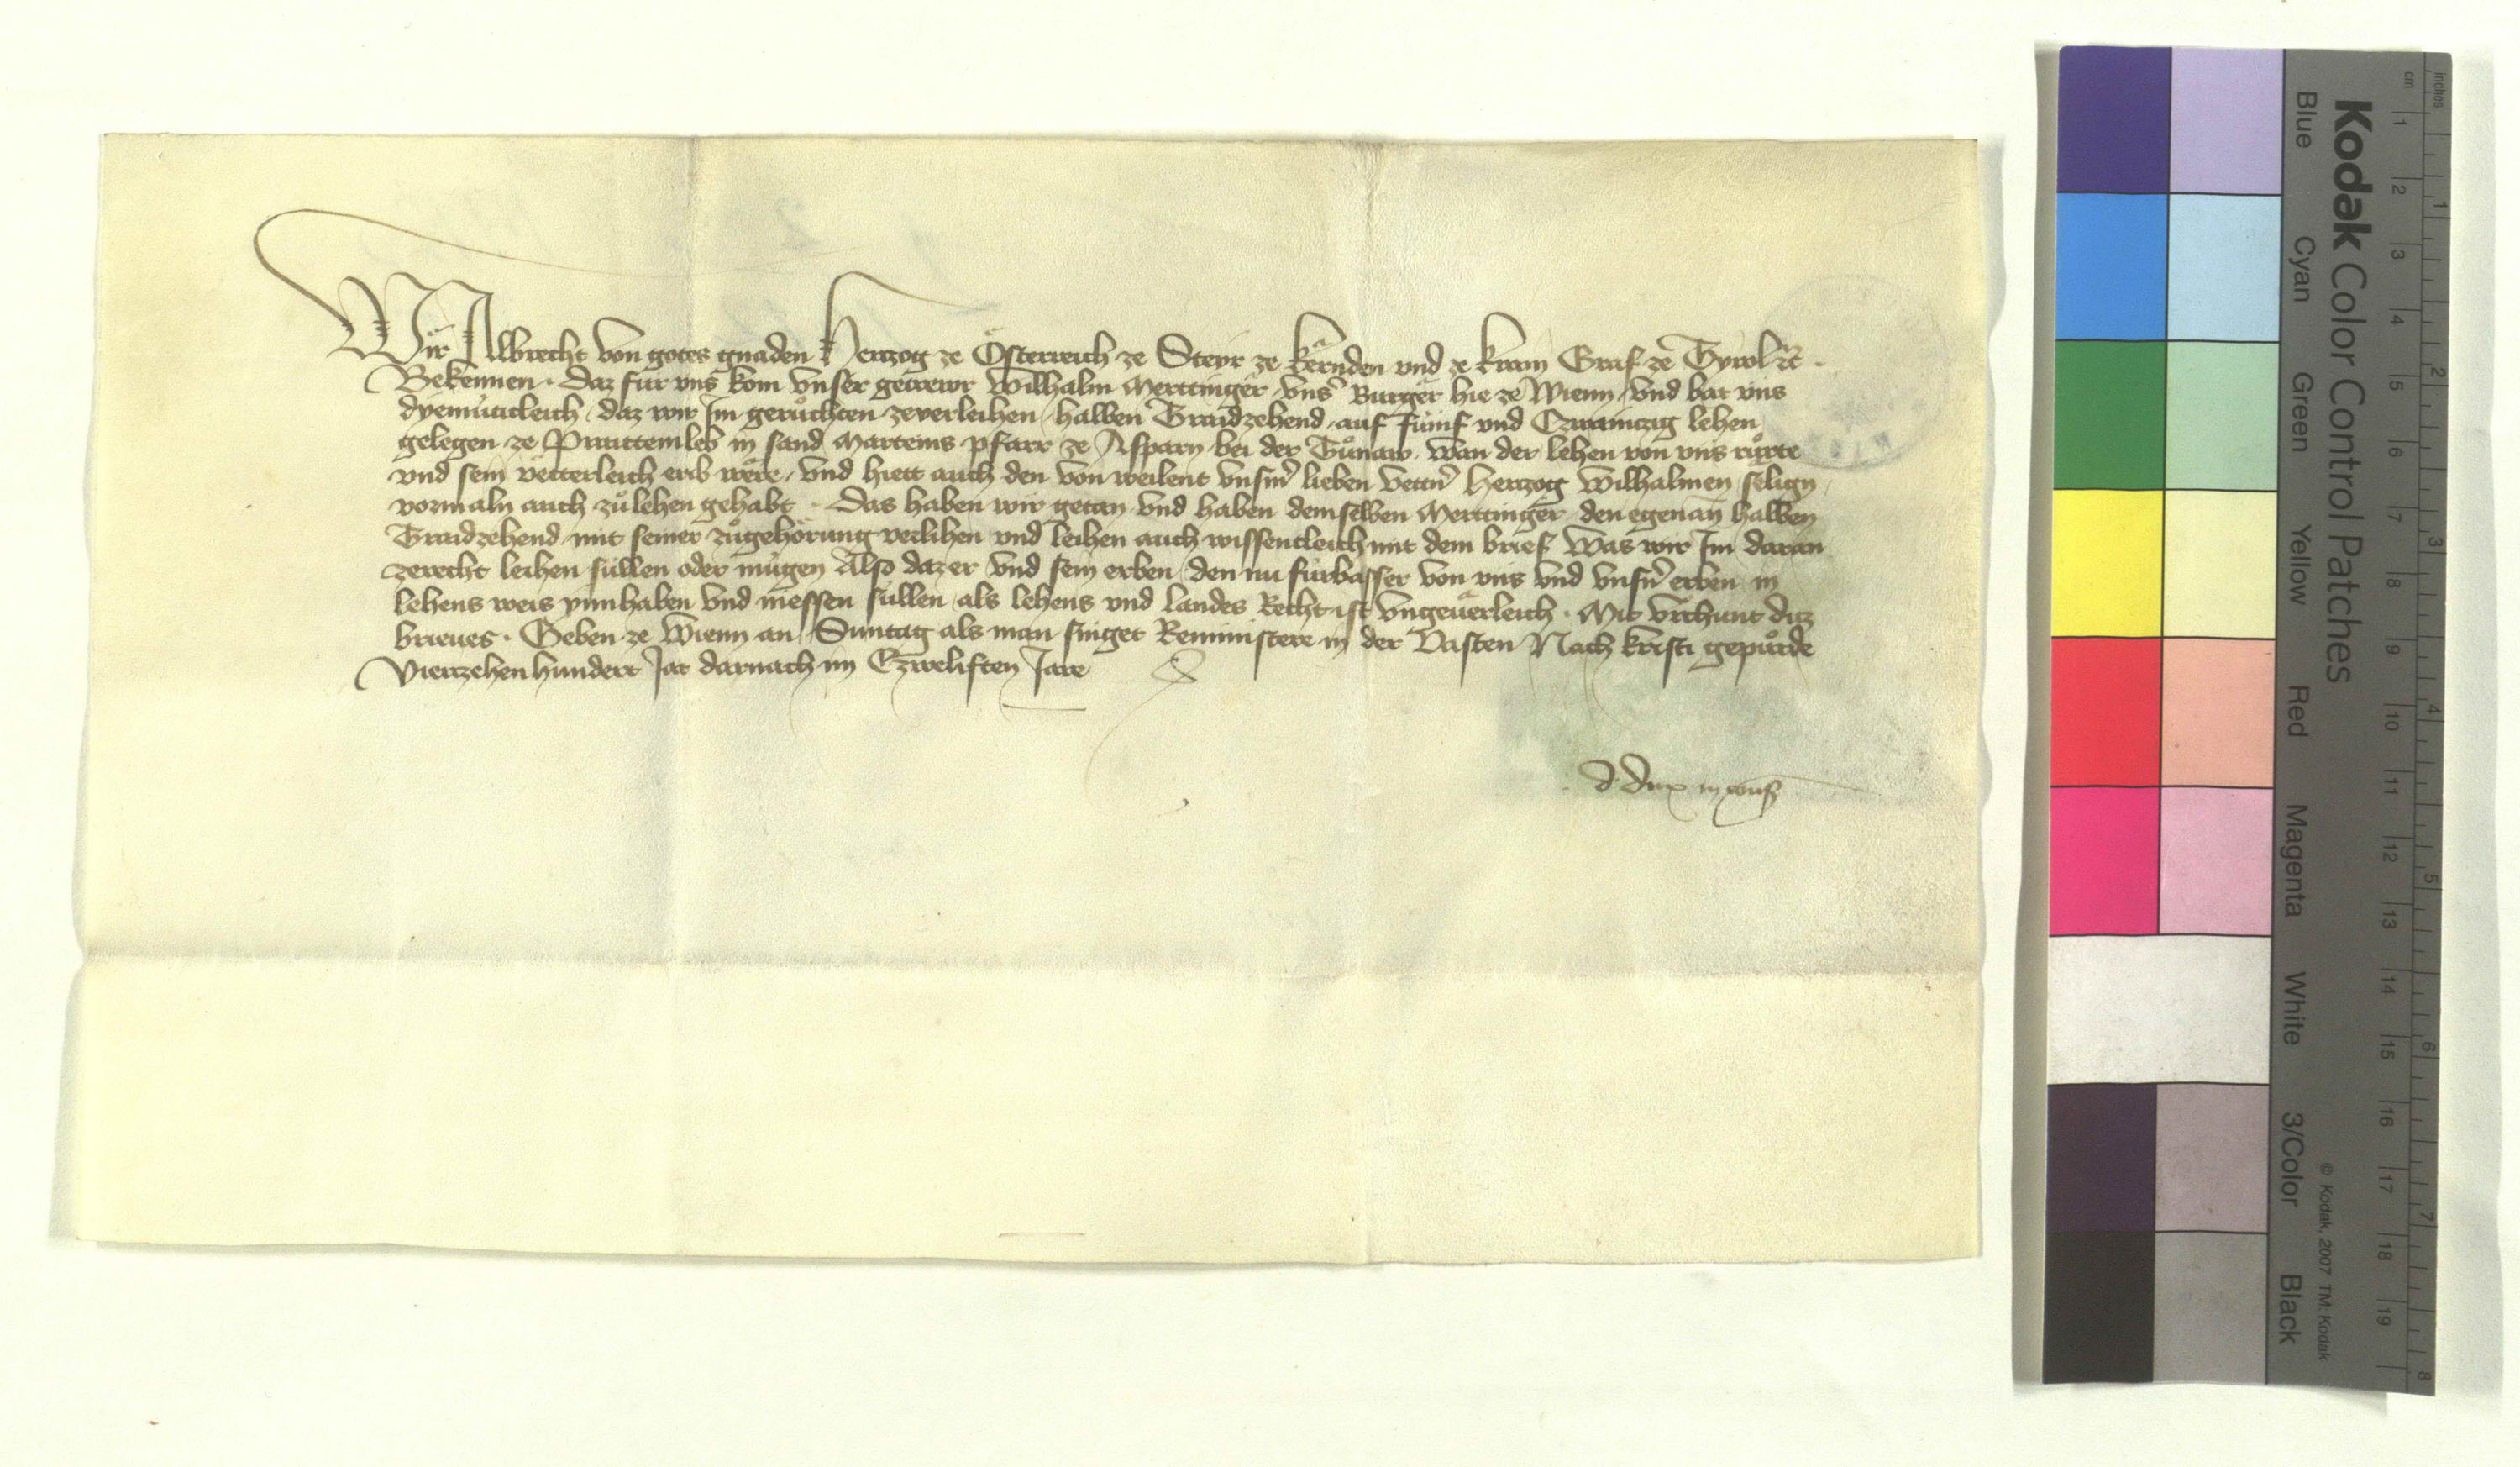 Wir Albrecht von gotes gnaden Hertzog ze Österreich ze Steyr ze kernden vnd ze krain Graf ze Tyrol ꝛc.
Bekennen. Daz für vns kom vnser getrewr Wilhalm Merttinger, vnser Burger hie ze Wienn, vnd bat vns
dyemuticleich, daz wir Im geruchten zeverleihen, halben Traidzehend, auf fünf vnd Czwaintzig lehen,
gelegen ze in sand Marteins pfarr ze Asparn bei der Tunaw. wan der lehen von vns rurte
vnd sein vetterleich erb were, vnd hiett auch den von weilent vnserm lieben vettern Hertzog Wilhalmen seligen,
vormaln auch zu lehen gehabt. Das haben wir getan vnd haben demselben Merttinger den egenan halben
Traidzehend mit seiner zugehorung verlihen vnd leihen auch wissentleich mit dem brief Was wir Im daran
zerecht leihen sullen oder mugen Also daz er vnd sein erben, den nu fürbasser von vns vnd vnsern erben in
lehens weis ynnhaben vnd niessen sullen, als lehens vnd landes Recht ist vngeuerleich. Mit vrchunt ditz
brieues. Geben ze Wienn an Suntag als man singet Reministere in der Vasten Nach kristi gepurde
Viertzehenhundert Jar darnach im Czweliften Jare
d. dux in cons
Kodak Color Control Patches
Blue Cyan Green Yellow Red Magenta White 3/Color Black
© Kodak, 2007 TM: Kodak
cm 1 2 3 4 5 6 7 8 9 10 11 12 13 14 15 16 17 18 19
inches 1 2 3 4 5 6 7 8